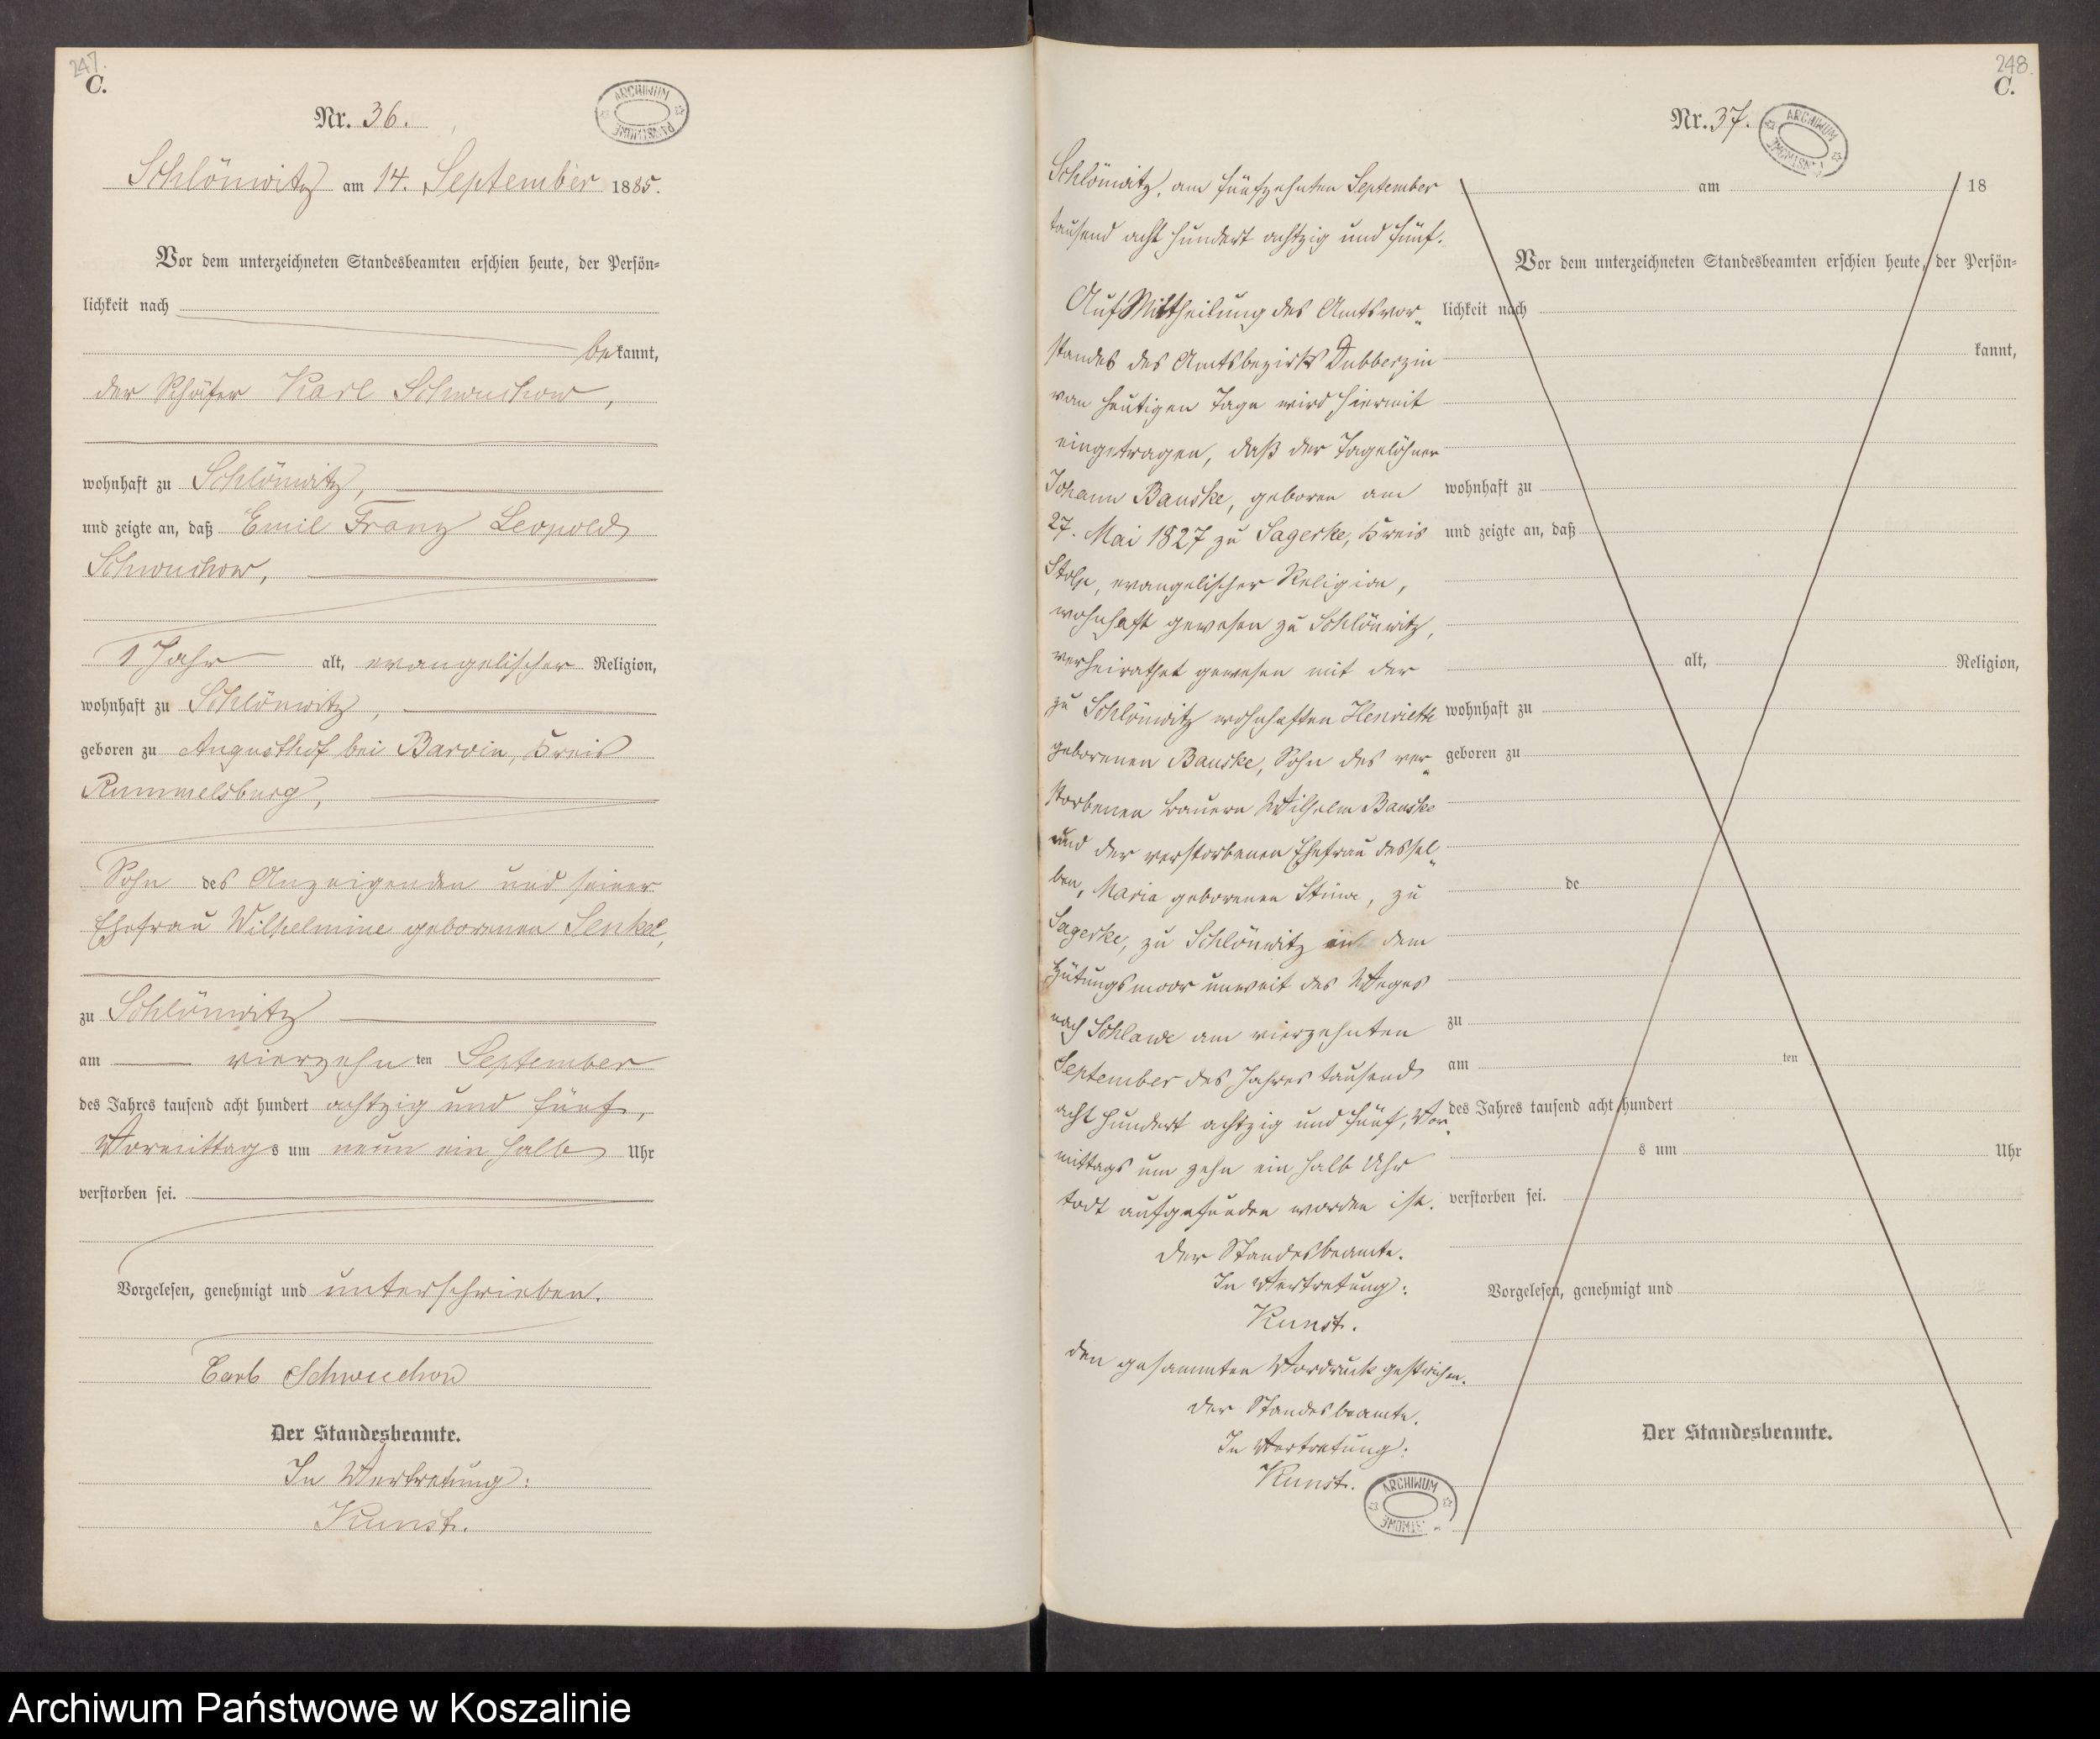 247.
C.
Nr. 36.
ARCHIWUM PAŃSTWOWE
Schlönwitz am 14. September 1885.
Vor dem unterzeichneten Standesbeamten erschien heute, der Persön=
lichkeit nach
bekannt,
der Schäfer Karl Schwuchow,
wohnhaft zu Schlönwitz,
und zeigte an, daß Emil Franz Leopold
Schwuchow,
1 Jahr alt, evangelischer Religion,
wohnhaft zu Schlönwitz,
geboren zu Augusthof bei Barvin, Kreis
Rummelsburg,
Sohn des Anzeigenden und seiner
Ehefrau Wilhelmine geborenen Senkel,
zu Schlönwitz
am vierzehn ten September
des Jahres tausend acht hundert achtzig und fünf,
Vormittags um neun ein halb Uhr
verstorben sei.
Vorgelesen, genehmigt und unterschrieben.
Carl Schwuchow
Der Standesbeamte.
In Vertretung:
Kunst.
248.
C.
Nr. 37.
ARCHIWUM
Schlönwitz, am fünfzehnten September
tausend acht hundert achtzig und fünf.
Auf Mittheilung des Amtsvor=
standes des Amtsbezirks Dubberzin
vom heutigen Tage wird hiermit
eingetragen, daß der Tagelöhner
Johann Bauske, geboren am
27. Mai 1827 zu Sagerke, Kreis
Stolp, evangelischer Religion,
wohnhaft gewesen zu Schlönwitz,
verheirathet gewesen mit der
zu Schlönwitz wohnhaften Henriette
geborenen Bauske, Sohn des ver=
storbenen Bauern Wilhelm Bauske
und der verstorbenen Ehefrau dessel=
ben, Maria geborenen, zu
Sagerke, zu Schlönwitz in dem
Hütungsmoor unweit des Weges
nach Schlawe am vierzehnten
September des Jahres tausend
acht hundert achtzig und fünf, Vor=
mittags um zehn ein halb Uhr
todt aufgefunden worden ist.
Der Standesbeamte.
In Vertretung:
Kunst.
Den gesammten Vordruck gestrichen.
Der Standesbeamte.
In Vertretung:
Kunst.
ARCHIWUM
am 18
Vor dem unterzeichneten Standesbeamten erschien heute, der Persön=
lichkeit nach
kannt,
wohnhaft zu
und zeigte an, daß
alt, Religion,
wohnhaft zu
geboren zu
de
zu
am ten
des Jahres tausend acht hundert
s um Uhr
verstorben sei.
Vorgelesen, genehmigt und
Der Standesbeamte.
Archiwum Państwowe w Koszalinie